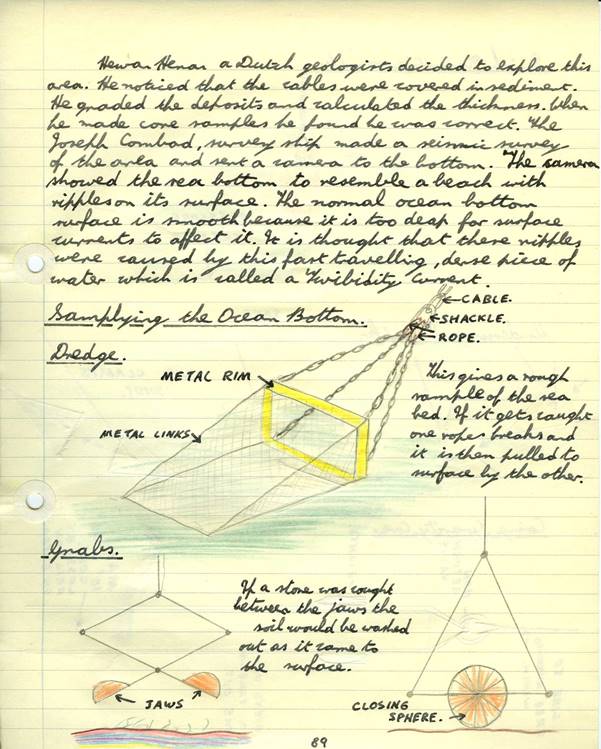 Hewan Henan a Dutch geologists decided to explore this
area. He noticed that the cables were covered in sediment.
He graded the deposits and calculated the thickness. When
he made core samples he found he was correct. The
Joseph Combad, survey ship made a seismic survey
of the area and sent a camera to the bottom. The camera
showed the sea bottom to resemble a beach with
ripples on its surface. The normal ocean bottom
surface is smooth because it is too deap for surface
currents to affect it. It is thought that these ripples
were caused by this fast travelling, dense piece of
water which is called a Twibidity Current.
Samplying the Ocean Bottom.
CABLE.
SHACKLE.
ROPE.
Dredge.
METAL RIM
METAL LINKS
This gives a rough
sample of the sea
bed. If it gets caught
one ropes breaks and
it is then pulled to
surface by the other.
Grabs.
If a stone was caught
between the jaws the
soil would be washed
out as it came to
the surface.
JAWS
CLOSING
SPHERE.
89